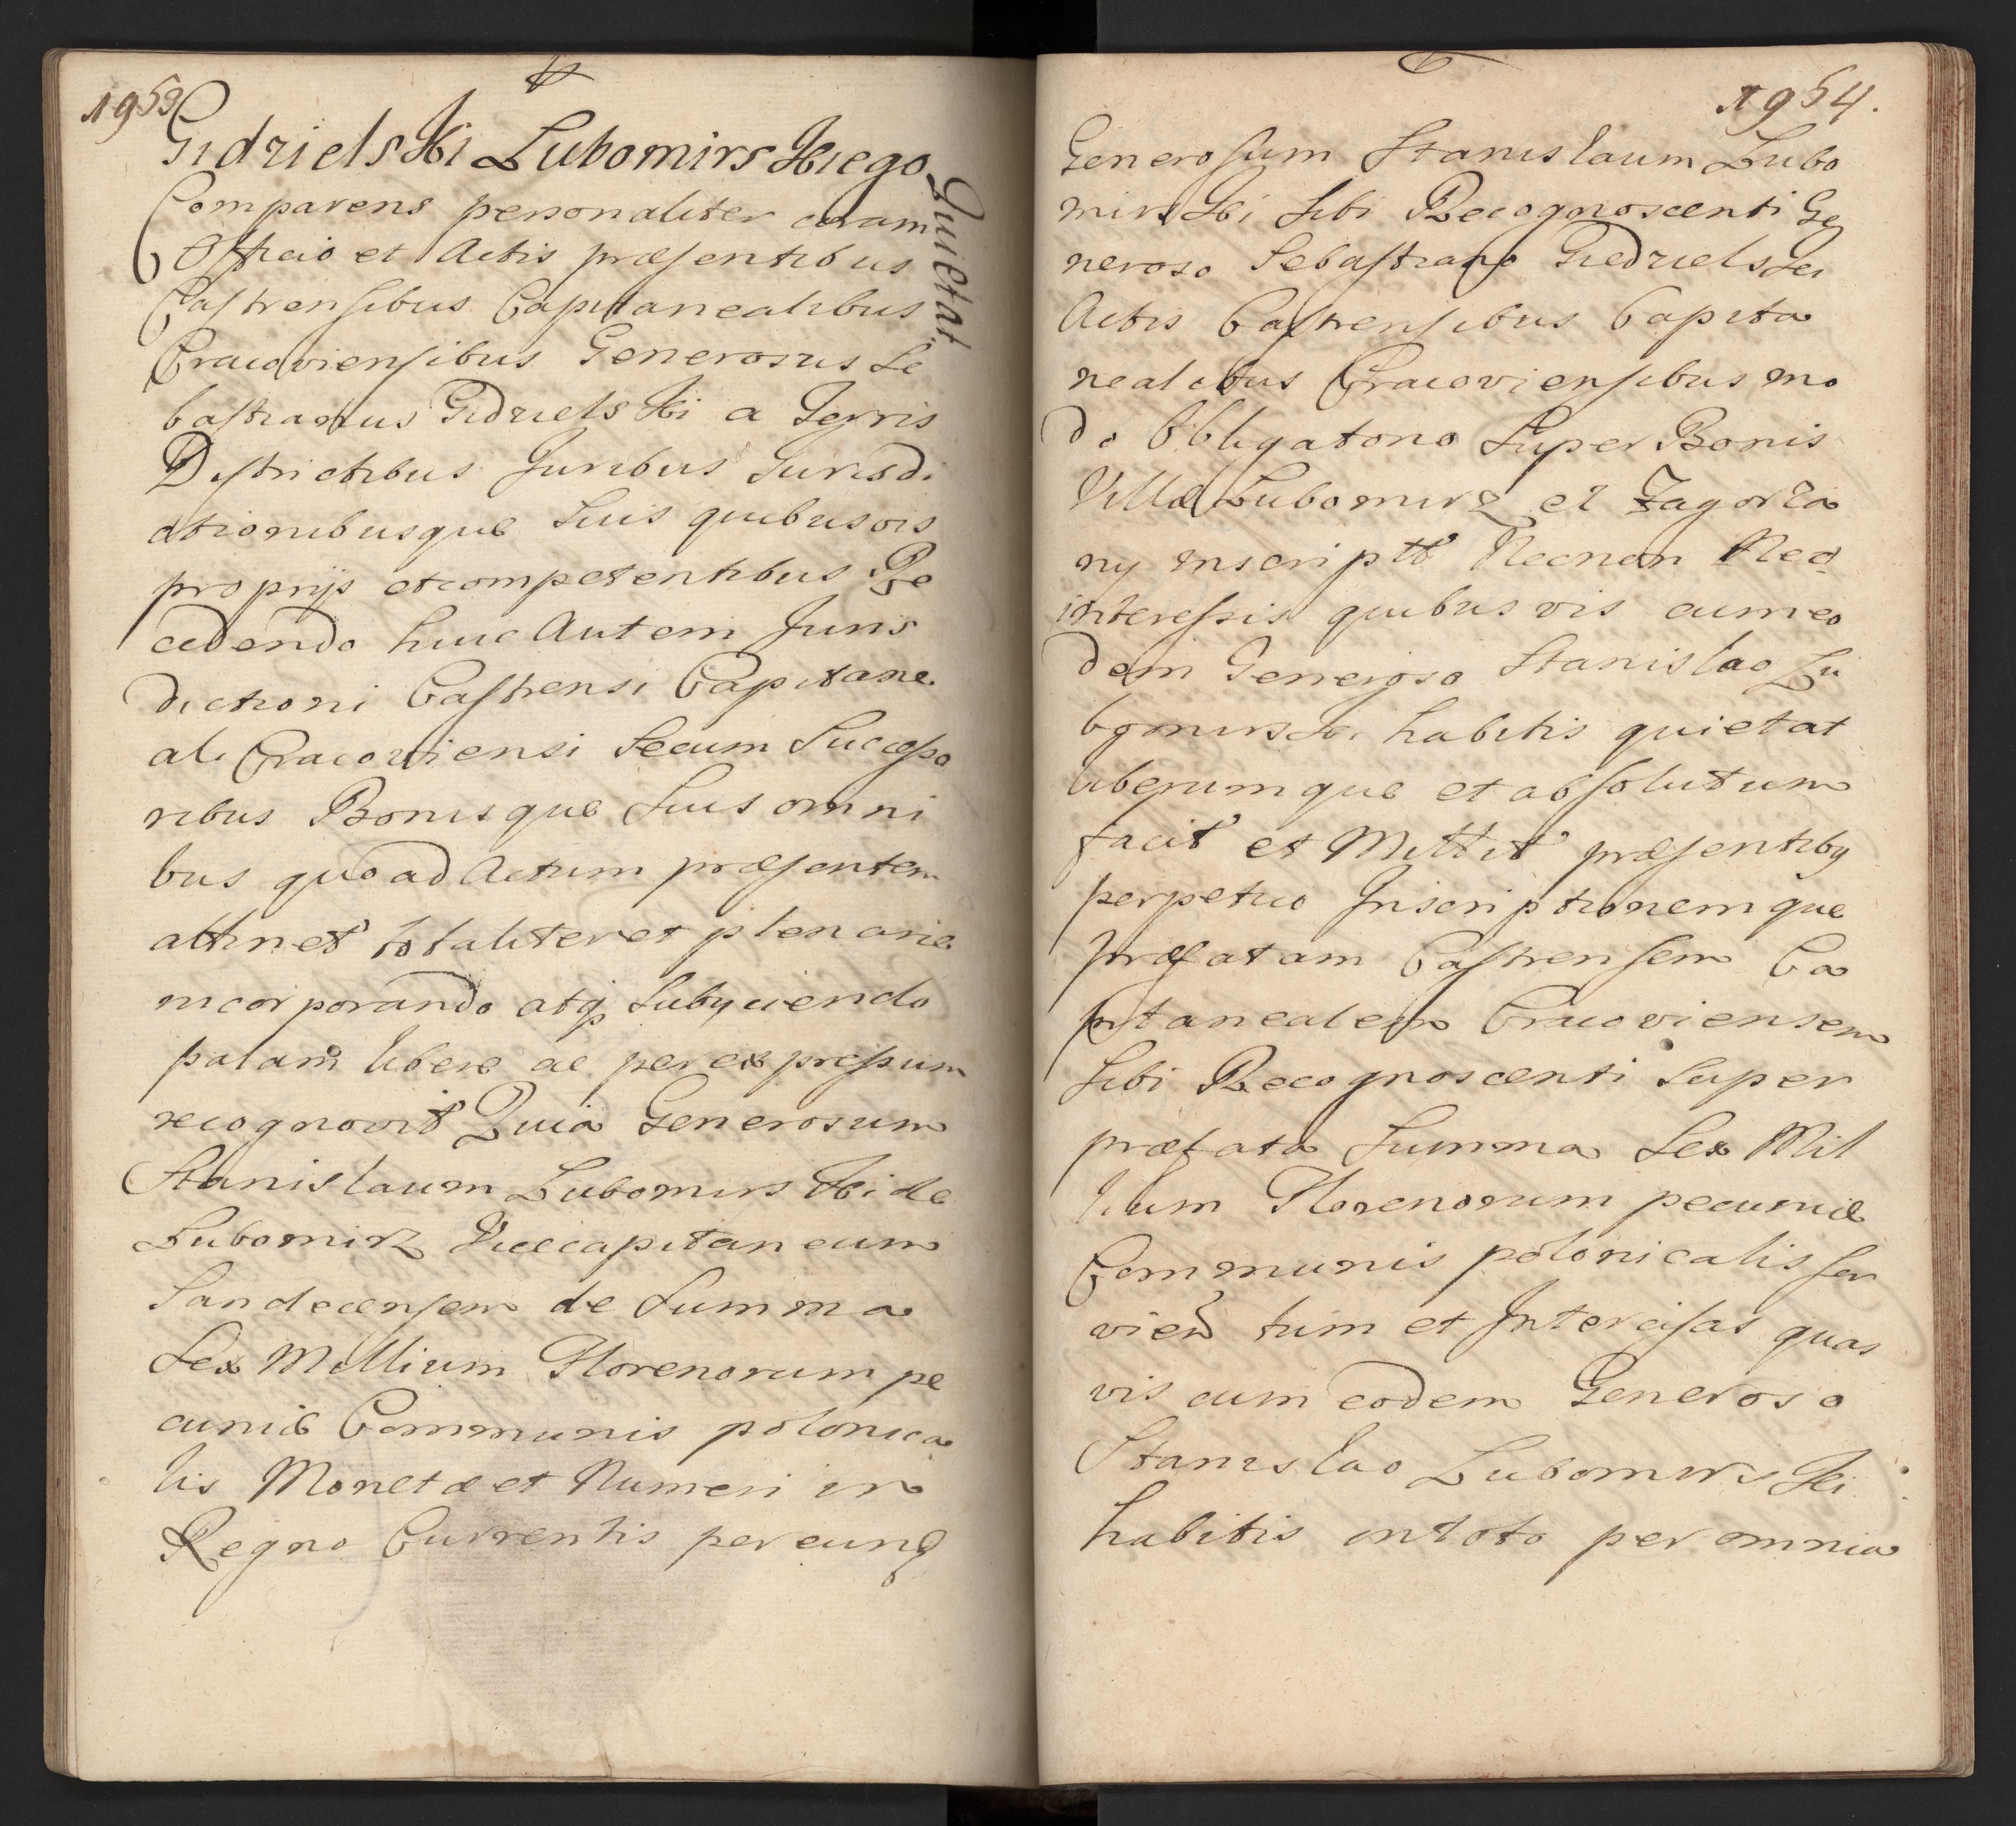 1953
Gidzielski Lubomirskiego
Quietat
Comparens personaliter coram
Officio et Actis præsentibus
Castrensibus Capitanealibus
Cracoviensibus Generosus Se
bastianus Gidzielski a Terris
Districtibus Juribus Jurisdi
ctionibusque Suis quibusvis
proprijs et competentibus Re
cedendo huic Autem Juris
dictioni Castrensi Capitane
ali Cracoviensi Secum Successo
ribus Bonisque Suis omni
bus quo ad Actum præsentem
attinet totaliter et plenarie
incorporando atq Subijciendo
palam libere ac per expressum
recognovit Quia Generosum
Stanislaum Lubomirski de
Lubomirz Vicecapitaneum
Sandecensem de Summa
Sex Millium Florenorum pe
cuniæ Communis polonica
lis Monetæ et Numeri in
Regno Currentis per eunq
1954.
Generosum Stanislaum Lubo
mirski Sibi Recognoscenti Ge
neroso Sebastiano Gidzielski
Actis Castrensibus Capita
nealibus Cracoviensibus mo
do Obligatorio Super Bonis
Villæ Lubomirz et Zagorza
ny inscriptt Necnon Ned
interessis quibusvis cum eo
dem Generoso Stanislao Lu
bomirski habitis quietat
liberumque et absolutum
facit et Mittit præsentiby
perpetuo Inscriptionemque
præfatam Castrensem Ca
pitanealem Cracoviensem
Sibi Recognoscenti Super
præfata Summa Sex Mil
lium Florenorum pecuniæ
Communis polonicalis ser
vien tum et Intercisas quas
vis cum eodem Generoso
Stanislao Lubomirski
habitis in toto per omnia